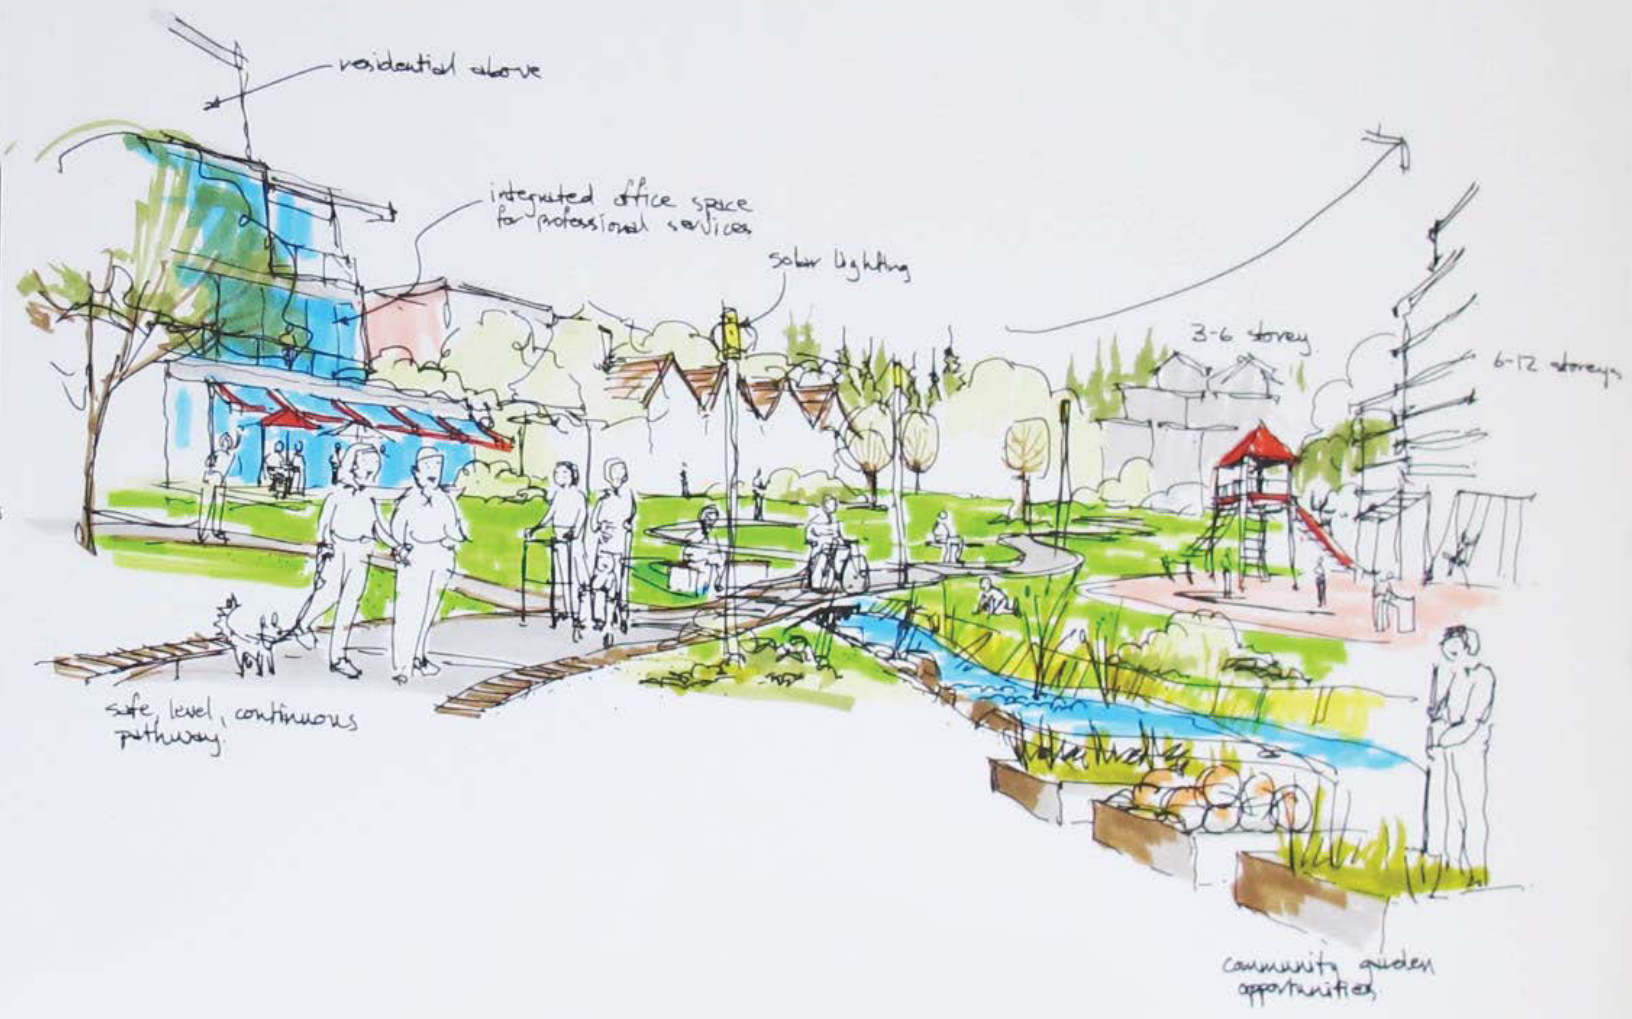 residential above
integrated office space
for professional services
solar lighting
3-6 storey
6-12 storeys
safe, level, continuous
pathway.
community garden
opportunities